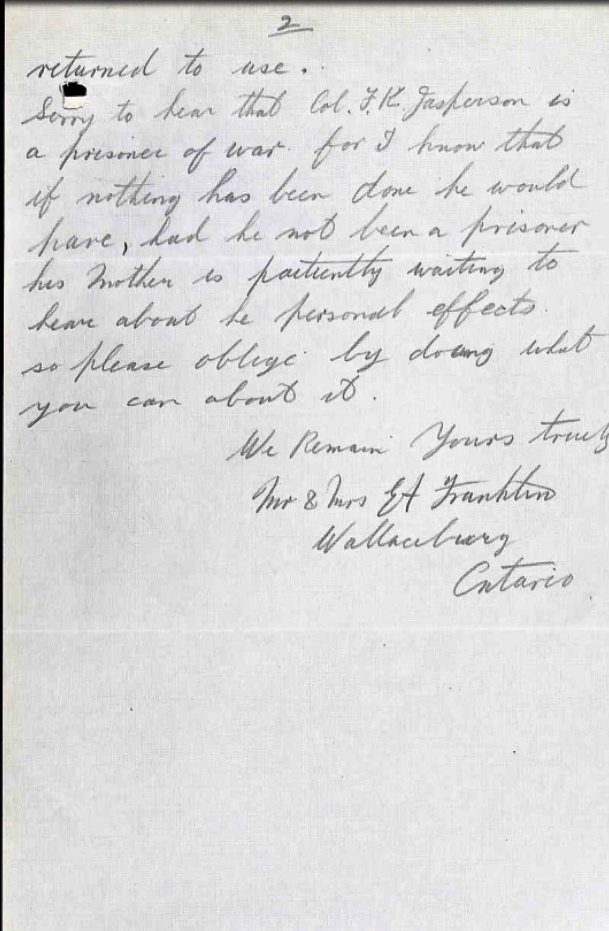 2
returned to use.
Sorry to hear that Col. F.K. Jasperson is
a prisoner of war. for I know that
if nothing has been done he would
have, had he not been a prisoner
his Mother is patiently waiting to
hear about he personal effects.
so please oblige by doing what
you can about it.
We Remain Yours truely
Mr & Mrs EA Franklin
Wallaceburg
Ontario